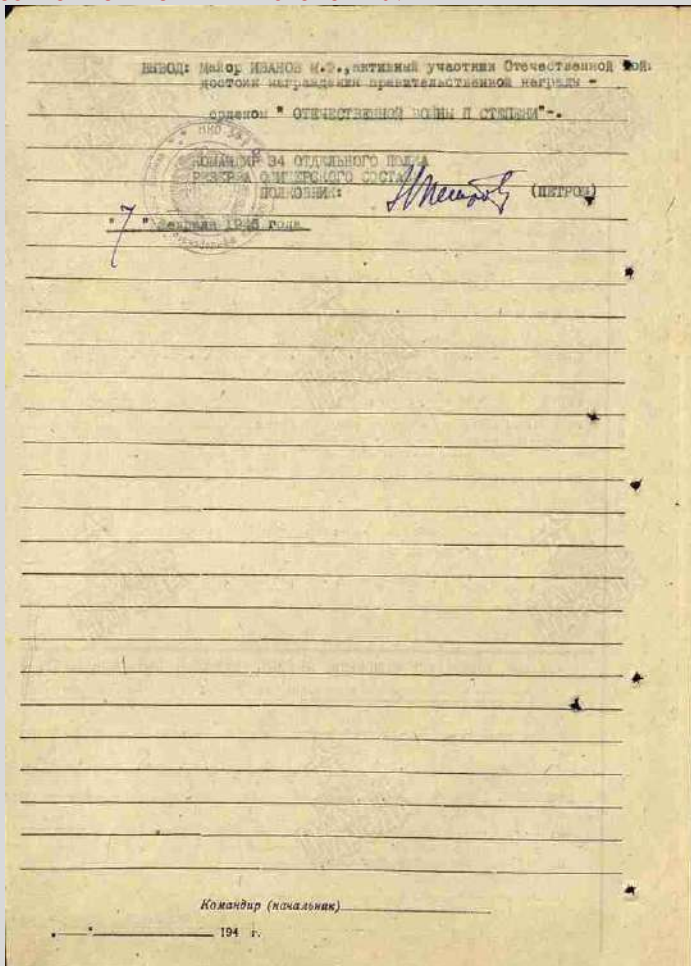 ВЫВОД: Майор ИВАНОВ М.Ф., активный участник Отечественной
достоин награждения правительственной награды -
орденом " ОТЕЧЕСТВЕННОЙ ВОЙНЫ П СТЕПЕНИ"-.
НКО
КОМАНДИР 34 ОТДЕЛЬНОГО ПОЛКА
РЕЗЕРВА ОФИЦЕРСКОГО СОСТАВА
ПОЛКОВНИК: (ПЕТРОВ)
"7" февраля 1945 года
Командир (начальник)
" " 194 г.